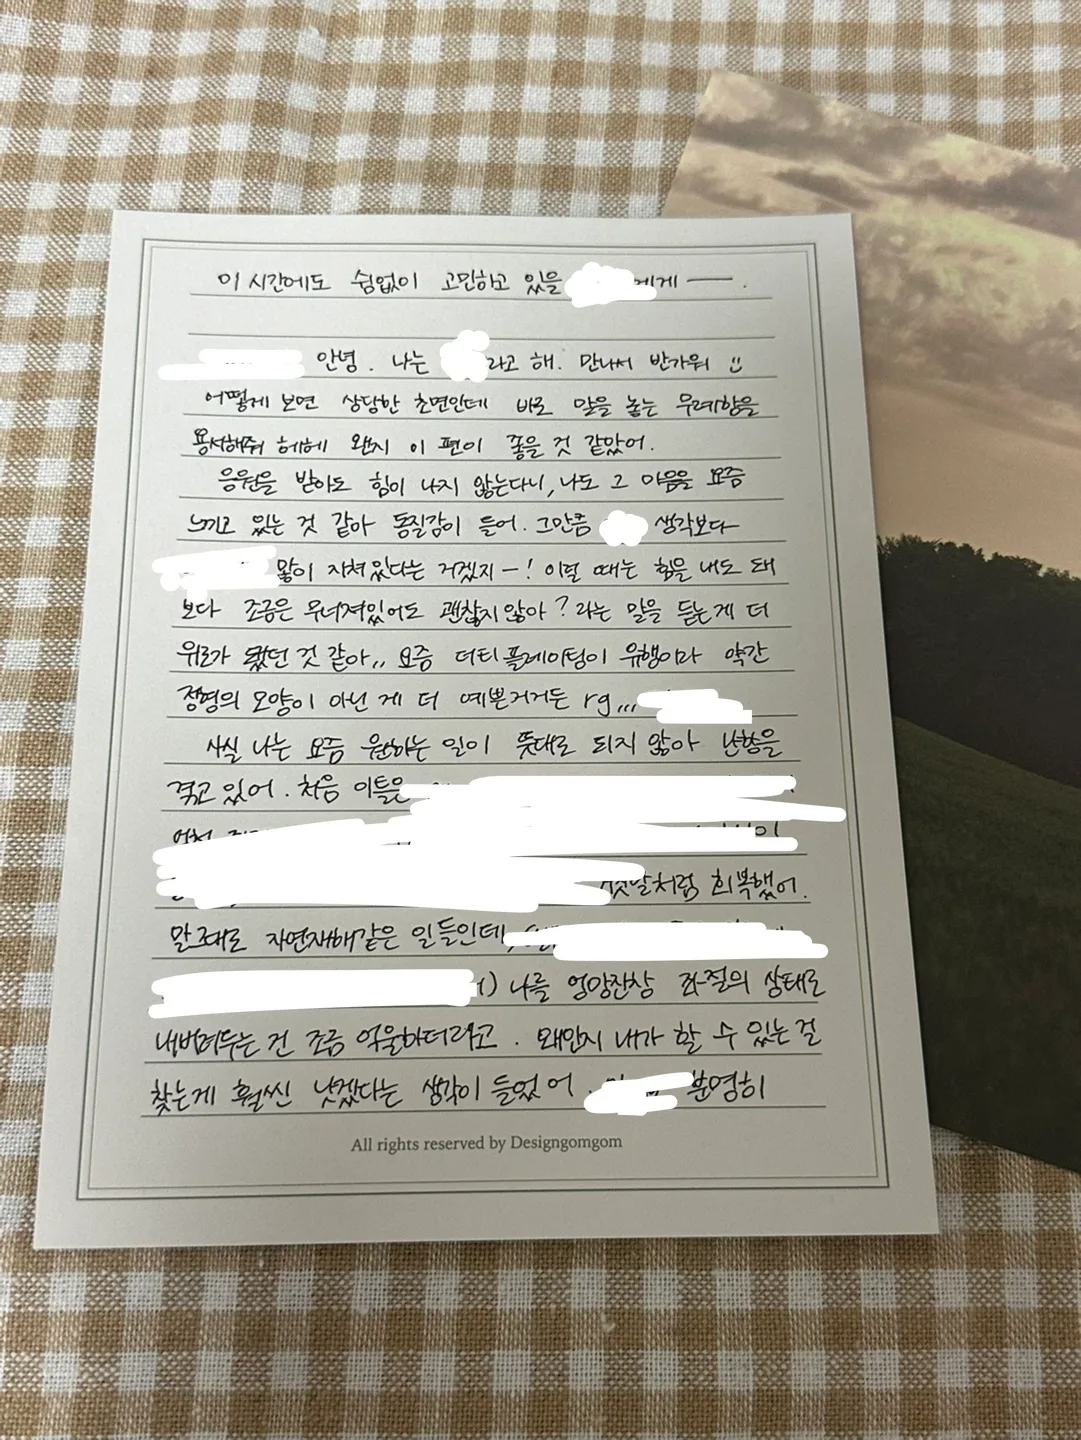 이 시간에도 쉼없이 고민하고 있을 에게 ―.
안녕. 나는 라고 해. 만나서 반가워
어떻게 보면 상당한 초면인데 바로 말을 놓는 무례함을
용서해줘 헤헤 왠지 이 편이 좋을 것 같았어.
응원을 받아도 힘이 나지 않는다니, 나도 그 마음을 요즘
느끼고 있는 것 같아 동질감이 들어. 그만큼 생각보다
많이 지쳐있다는 거겠지-! 이럴 때는 힘을 내도 돼
보다 조금은 무너져있어도 괜찮지않아? 라는 말을 듣는게 더
위로가 됐던 것 같아,, 요즘 더티플레이팅이 유행이라 약간
정형의 모양이 아닌 게 더 예쁜거거든 rg,,,
사실 나는 요즘 원하는 일이 뜻대로 되지 않아 난항을
겪고 있어. 처음 이틀은
처럼 회복했어.
말그대로 자연재해같은 일들인데,
나를 엉망진창 좌절의 상태로
내버려두는 건 조금 억울하더라고. 왜인지 내가 할 수 있는 걸
찾는게 훨씬 낫겠다는 생각이 들었어. 분명히
All rights reserved by Designgomgom